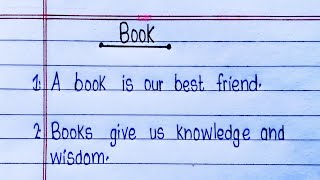 Book
1. A book is our best friend.
2. Books give us knowledge and
wisdom.